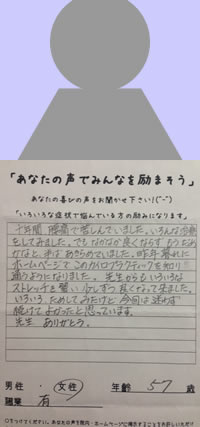 「あなたの声でみんなを励まそう」
あなたの喜びの声をお聞かせ下さい!(^-^)
「いろいろな症状で悩んでいる方の励みになります」
十年間 腰痛で苦しんでいました。いろんな治療
をしてみました。でもなかなか良くならず もうだめ
かなと、半ばあきらめていました。昨年暮れに
ホームページでこのカイロプラクティックを知り
通うようになりました。先生からもいろいろな
ストレッチを習い 少しずつ良くなって来ました。
いろいろためしてみたけど 今回は迷わず
続けてよかったと思っています。
先生 ありがとう。
男性 ・ 女性 年齢 57 歳
職業 有